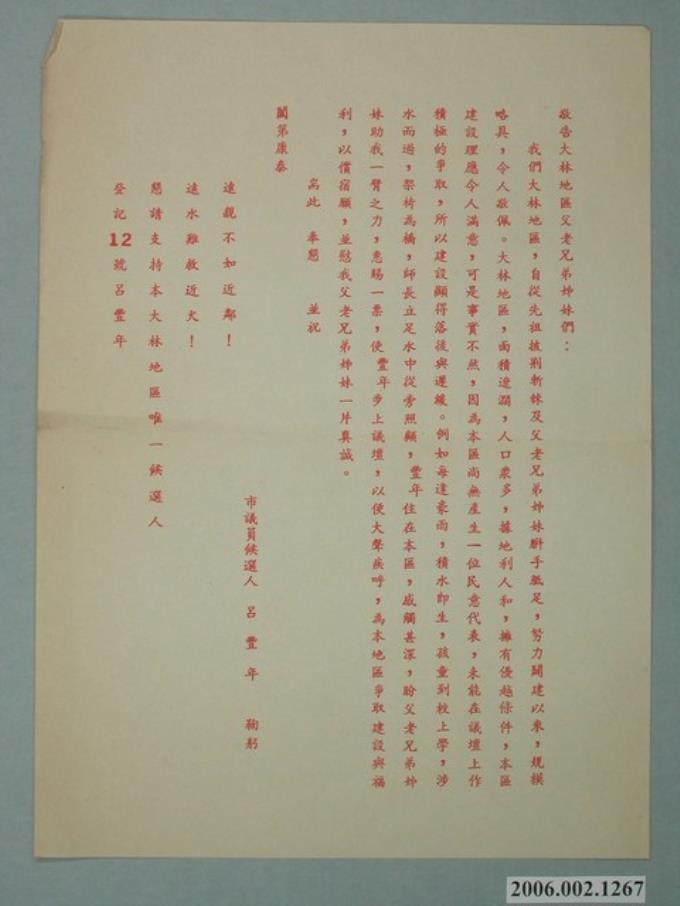 敬告大林地區父老兄弟姊妹們：
我們大林地區，自從先祖披荆斬棘及父老兄弟姊妹胼手胝足，努力闢建以來，規模
略具，令人敬佩。大林地區，面積遼濶，人口衆多，據地利人和，擁有優越條件，本區
建設理應令人滿意，可是事實不然，因為本區尚無產生一位民意代表，未能在議壇上作
積極的爭取，所以建設顯得落後與遲緩。例如每逢豪雨，積水即生，孩童到校上學，涉
水而過，架椅為橋，師長立足水中從旁照顧，豐年住在本區，感觸甚深，盼父老兄弟姊
妹助我一臂之力，惠賜一票，使豐年步上議壇，以便大聲疾呼，為本地區爭取建設與福
利，以償宿願，並慰我父老兄弟姊妹一片真誠。
耑此　奉懇　並祝
闔第康泰
市議員候選人　呂豐年　鞠躬
遠親不如近鄰！
遠水難救近火！
懇請支持本大林地區唯一候選人
登記12號呂豐年
2006.002.1267